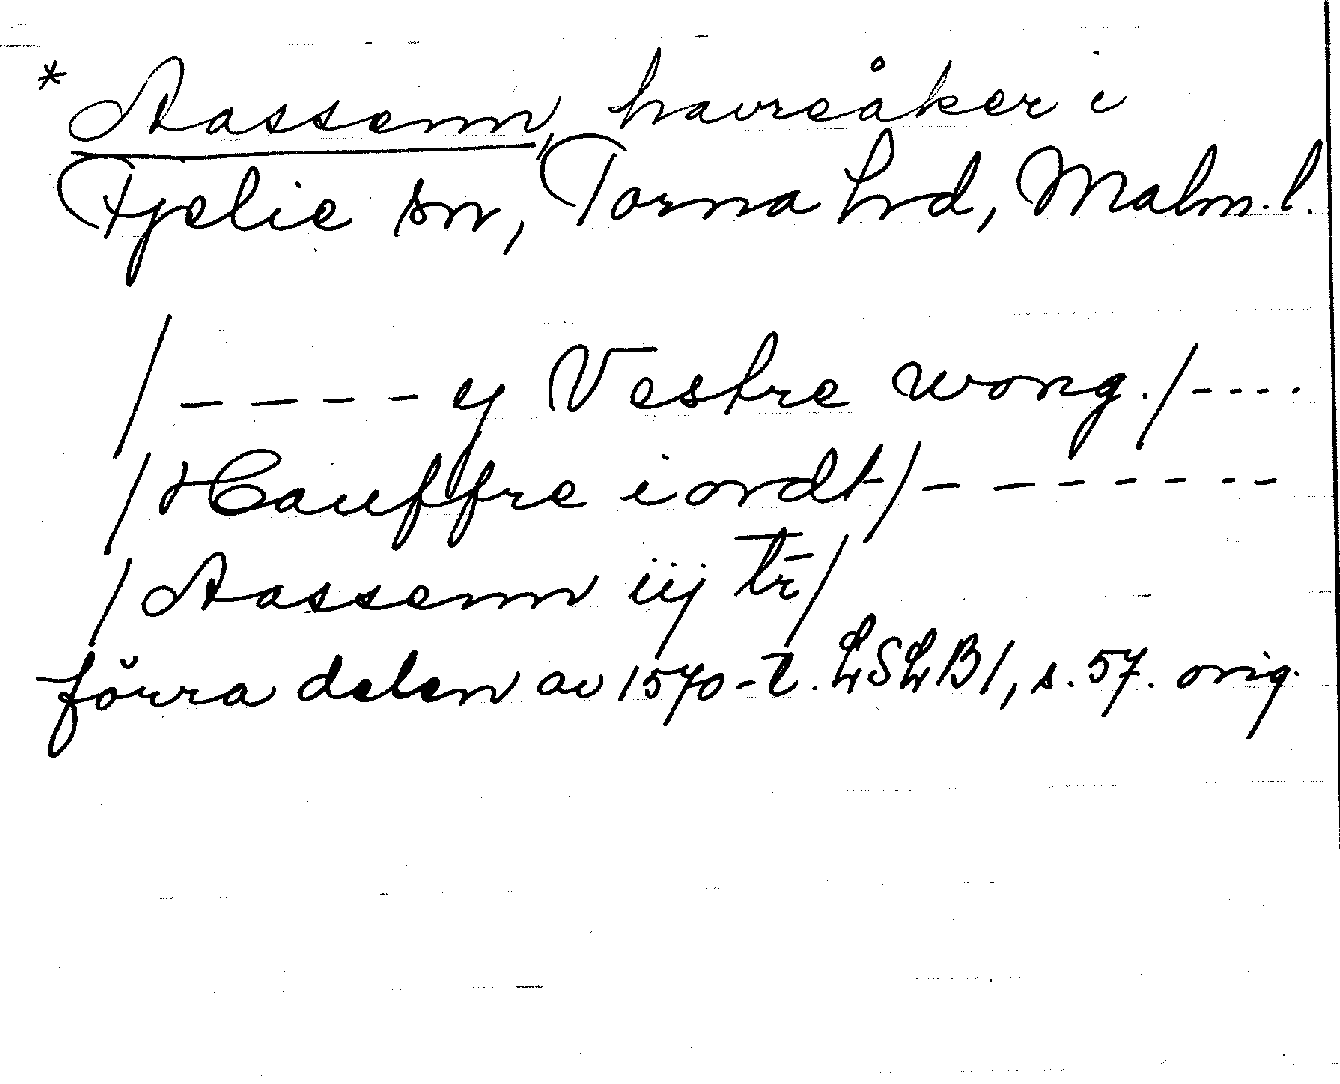 * Aassenn, havreåker i
Fjelie sn, Torna hrd, Malm. l.
/ - - - - ij Vestre wong. / - - - -
/ Hauffre iordt / - - - - - - -
/ Aassenn iij tr̄ /
förra delen av 1570-t. LSLB1, s. 57. orig.